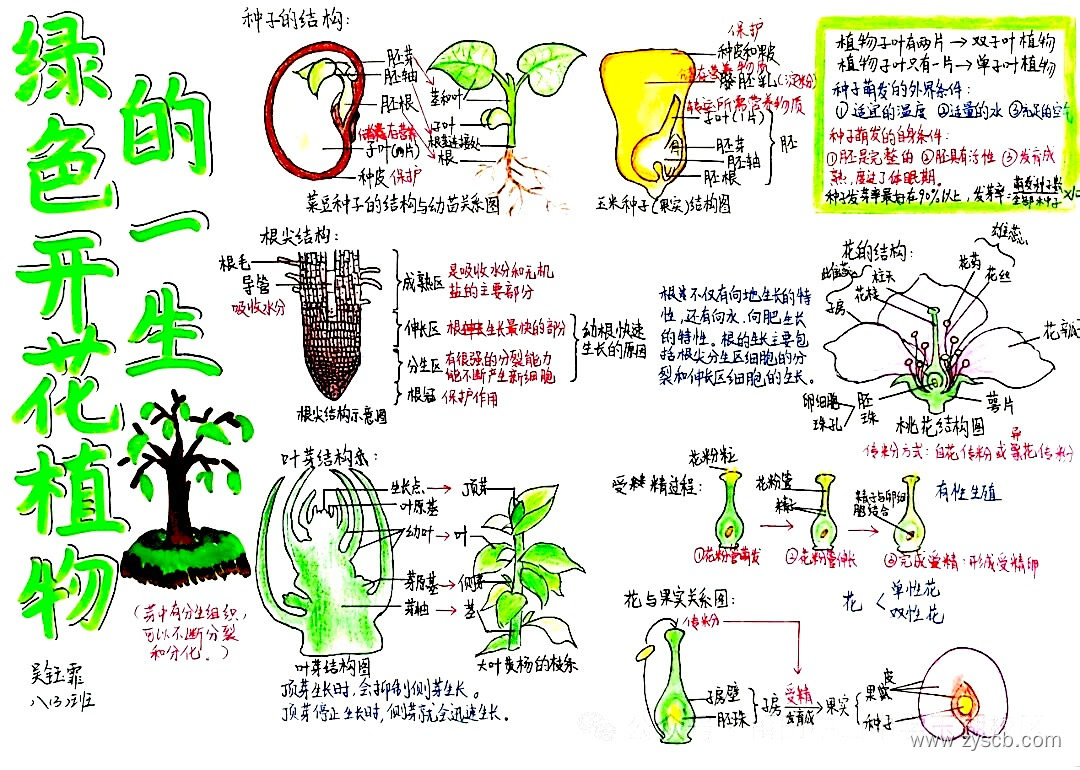 绿色开花植物
的一生
吴钰霏
八(3)班
(芽中有分生组织,
可以不断分裂
和分化。)
种子的结构:
胚芽
胚轴
胚根
子叶(两片)
种皮 保护
茎和叶
子叶
根茎连接处
根
菜豆种子的结构与幼苗关系图
保护
种皮和果皮
胚乳(淀粉)
子叶(1片)
胚芽
胚轴
胚根
胚
玉米种子(果实)结构图
植物子叶有两片→双子叶植物
植物子叶只有一片→单子叶植物
种子萌发的外界条件:
①适宜的温度 ②适量的水 ③充足的空气
种子萌发的自身条件:
①胚是完整的 ②胚具有活性 ③发育成
熟,度过了休眠期。
种子发芽率最好在90%以上,发芽率:
根尖结构:
根毛
导管
吸收水分
成熟区 是吸收水分和无机
盐的主要部分
伸长区 根生长最快的部分
分生区 有很强的分裂能力
能不断产生新细胞
根冠 保护作用
幼根快速
生长的原因
根尖结构示意图
根尖不仅有向地生长的特
性,还有向水、向肥生长
的特性。根的生长主要包
括根尖分生区细胞的分
裂和伸长区细胞的生长。
花的结构:
雄蕊
花药
花丝
雌蕊
柱头
花柱
子房
花瓣
卵细胞
珠孔
胚珠
萼片
桃花结构图
传粉方式:自花传粉或异花传粉
叶芽结构示:
生长点→顶芽
叶原基
幼叶→叶
芽原基→侧芽
芽轴→茎
叶芽结构图
大叶黄杨的枝条
顶芽生长时,会抑制侧芽生长。
顶芽停止生长时,侧芽就会迅速生长。
受精过程:
花粉粒
花粉管
精子
精子与卵细
胞结合
有性生殖
①花粉管萌发
②花粉管伸长
③完成受精:形成受精卵
花
单性花
双性花
花与果实关系图:
传粉
子房壁
胚珠
子房
受精
发育成
果实
果皮
种子
www.zyscb.com